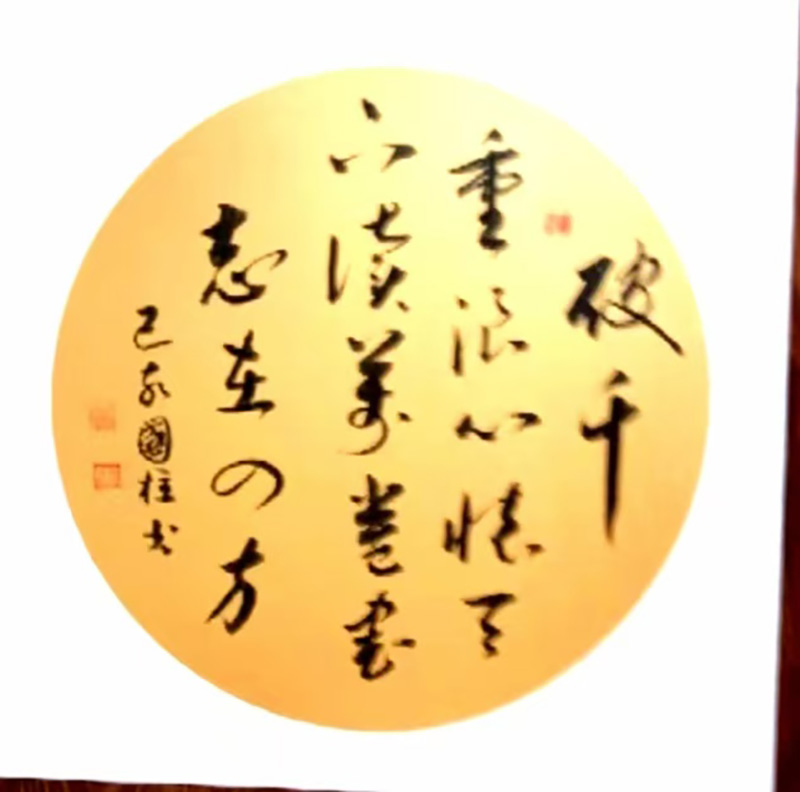 破千
重浪心怀天
下读万卷书
志在四方
己亥國柱书